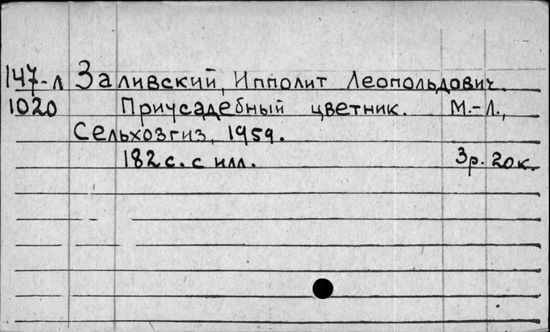 147-л Заливский, Ипполит Леопольдович.
1020 Приусадебный цветник. М.-Л.,
Сельхозгиз, 1959.
182 с. с илл. 3р. 20к.